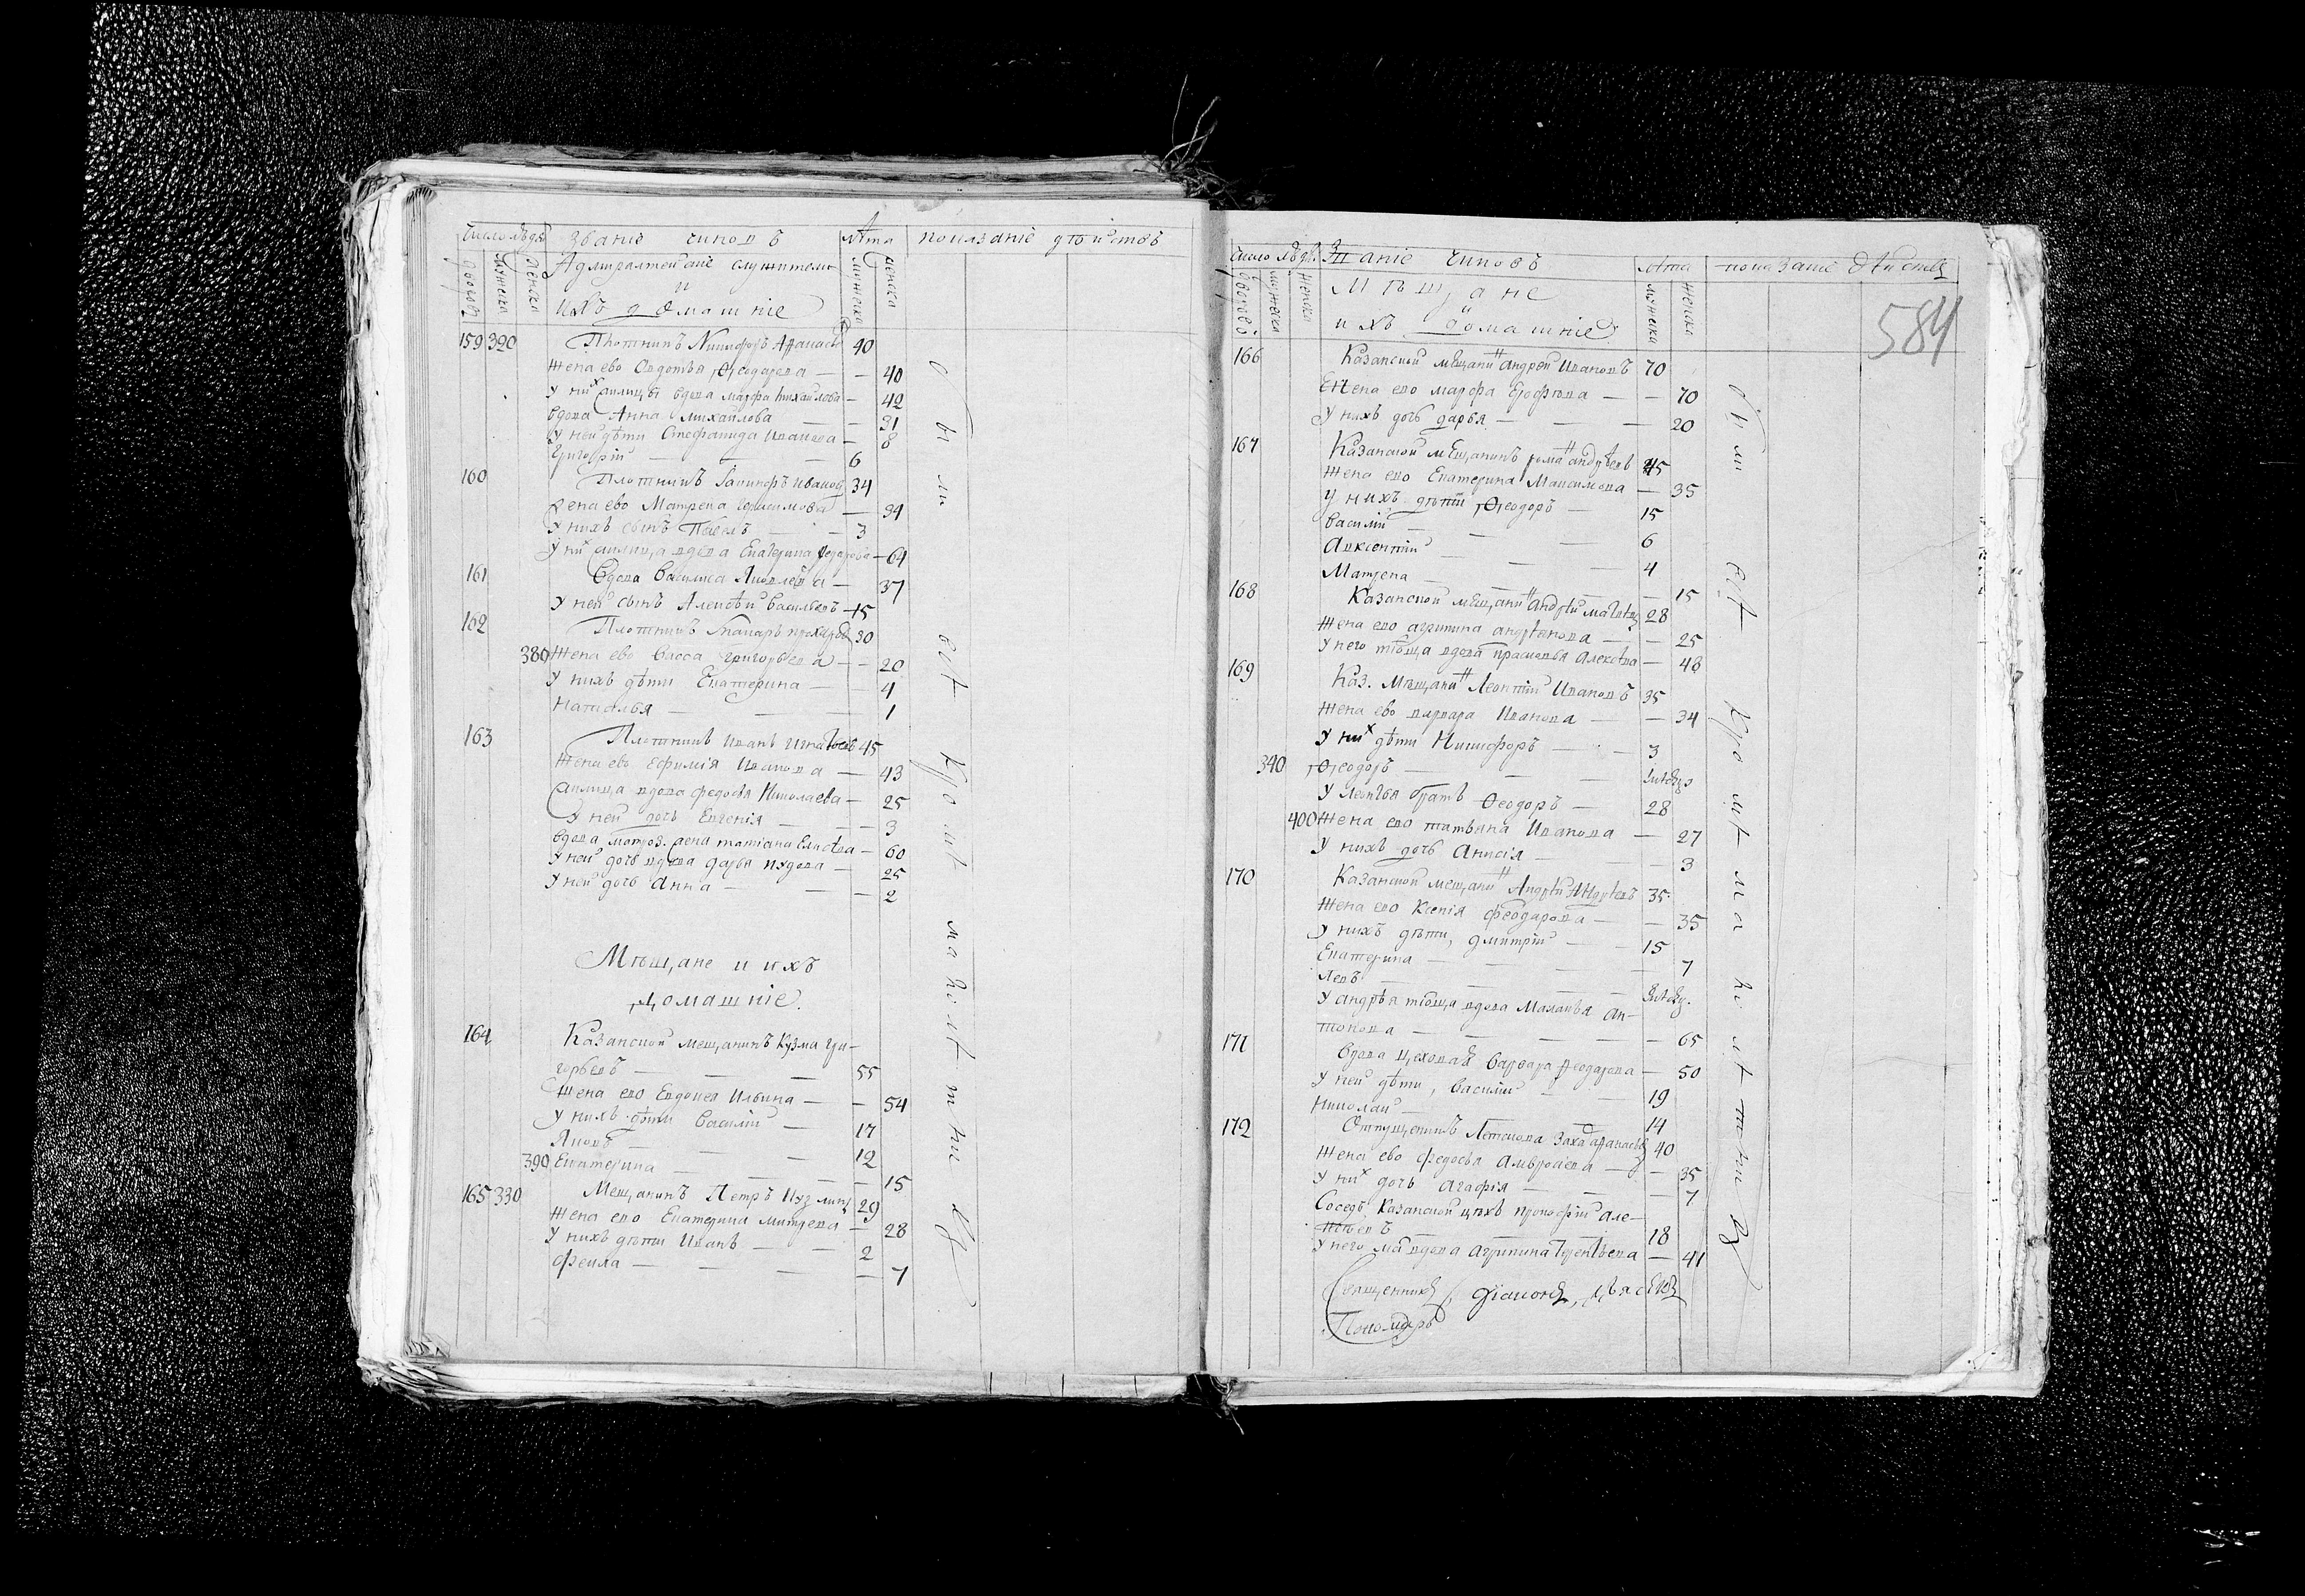 число людей званіе чиновъ лѣта показаніе дѣйствъ
дворовъ мужеска женска Адмиралтейские служители мужеска женска
и
ихъ домашніе
159 320 Плотникъ Никифоръ Афанасьевъ 40
Жена ево Авдотья Ѳеодорова — — 40
У них свояница вдова Марфа Михайлова — 42
Вдова Анна Михайлова — — 31
У ней дѣти Стефанида Иванова — 8
Григорій — — — 6
160 Плотникъ Іакинфъ Ивановъ 34
Жена ево Матрена Герасимова — 34
У нихъ сынъ Павелъ — — 3
У них вдова Екатерина Федорова — 64
161 Вдова Василиса Яковлева — 37
У ней сынъ Алексѣй Васильевъ — 15
162 Плотникъ Макаръ Прохоровъ 30
380 Жена ево Васса Григорьева — — 20
У нихъ дѣти Екатерина — — 4
Наталья — — — 1
163 Плотникъ Иванъ Игнатьевъ 45
Жена ево Ефимія Иванова — 43
вдова Федосья Николаева — 25
У ней дочь Евгенія — — 3
Вдова матроз. жена Татіана Елисѣева — 60
У ней дочь вдова Дарья — 25
У ней дочь Анна — — — 2
Мѣщане и ихъ
домашніе.
164 Казанской мещанинъ Кузма Гри-
горьевъ — — — 55
Жена ево Евдокея Ильина — — 54
У нихъ дѣти Василій — 17
Яковъ — — — 12
390 Екатерина — — — 15
165 330 Мещанинъ Петръ Кузминъ 29
Жена ево Екатерина Митрева — 28
У нихъ дѣти Иванъ — — 2
Фекла — — — — 7
О Были всѣ Кромѣ малолѣтных
число людей Званіе чиновъ лѣта показаніе дѣйствъ
дворовъ мужеска женска Мѣщане мужеска женска
и
ихъ домашніе
584
166 Казанской мещанинъ Андрей Ивановъ 70
Жена ево Марфа Ерофѣева — — 70
У нихъ дочь Дарья — — — 20
167 Казанской мещанинъ Рома Андреевъ 45
Жена ево Екатерина Максимова — 35
У нихъ дѣти Ѳеодоръ — 15
Василій — — — 6
Авксентій — — — 4
Матрена — — — 15
168 Казанской мещанинъ Андрей 28
Жена ево Агрипина Андреянова — — 25
У него тёща вдова Прасковья Алексѣева — 48
169 Каз. мещанинъ Леонтій Ивановъ 35
Жена ево Варвара Иванова — — 34
У них дѣти Никифоръ — — 3
340 Ѳеодоръ — — —
У Леонтья братъ Ѳеодоръ — 28
400 Жена ево Татьяна Иванова — 27
У нихъ дочь Анисія — — 3
170 Казанской мещанинъ Андрей Андреевъ 35
Жена ево Ксенія Феодорова — — 35
У нихъ дѣти, Дмитрій — — 15
Екатерина — — — 7
Левъ — — —
У Андрея тёща вдова Маланья Ан-
тонова — — — — 65
171 Вдова цеховая Варвара Феодорова — 50
У ней дѣти, Василій — — 19
Николай — — — 14
172 Отпущеникъ Захар Афанасьевъ 40
Жена ево Федосья Амвросиева — — 35
У них дочь Агафія — — — 7
Соседъ Казанской цеха Прокофій Але-
ксѣевъ — — — 18
У него ма вдова Агрипина Терентьева — 41
Священникъ, Діаконъ, Дьячекъ
Пономарь
Были всѣ Кромѣ малолѣтных